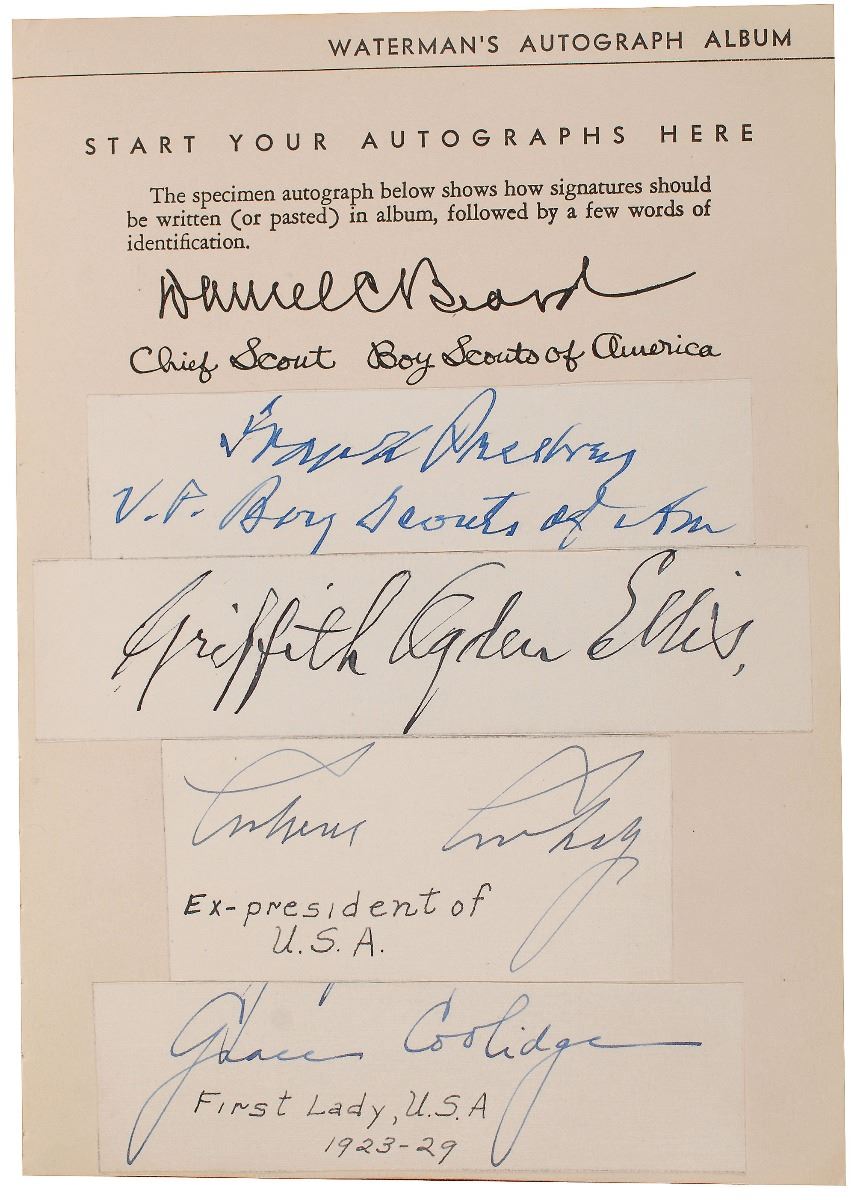 WATERMAN'S AUTOGRAPH ALBUM
START YOUR AUTOGRAPHS HERE
The specimen autograph below shows how signatures should
be written (or pasted) in album, followed by a few words of
identification.
Daniel C Beard
Chief Scout Boy Scouts of America
Frank Presbrey
V.P. Boy Scouts of Am
Griffith Ogden Ellis,
Calvin Coolidge
Ex-president of
U.S.A.
Grace Coolidge
First Lady, U.S.A
1923-29